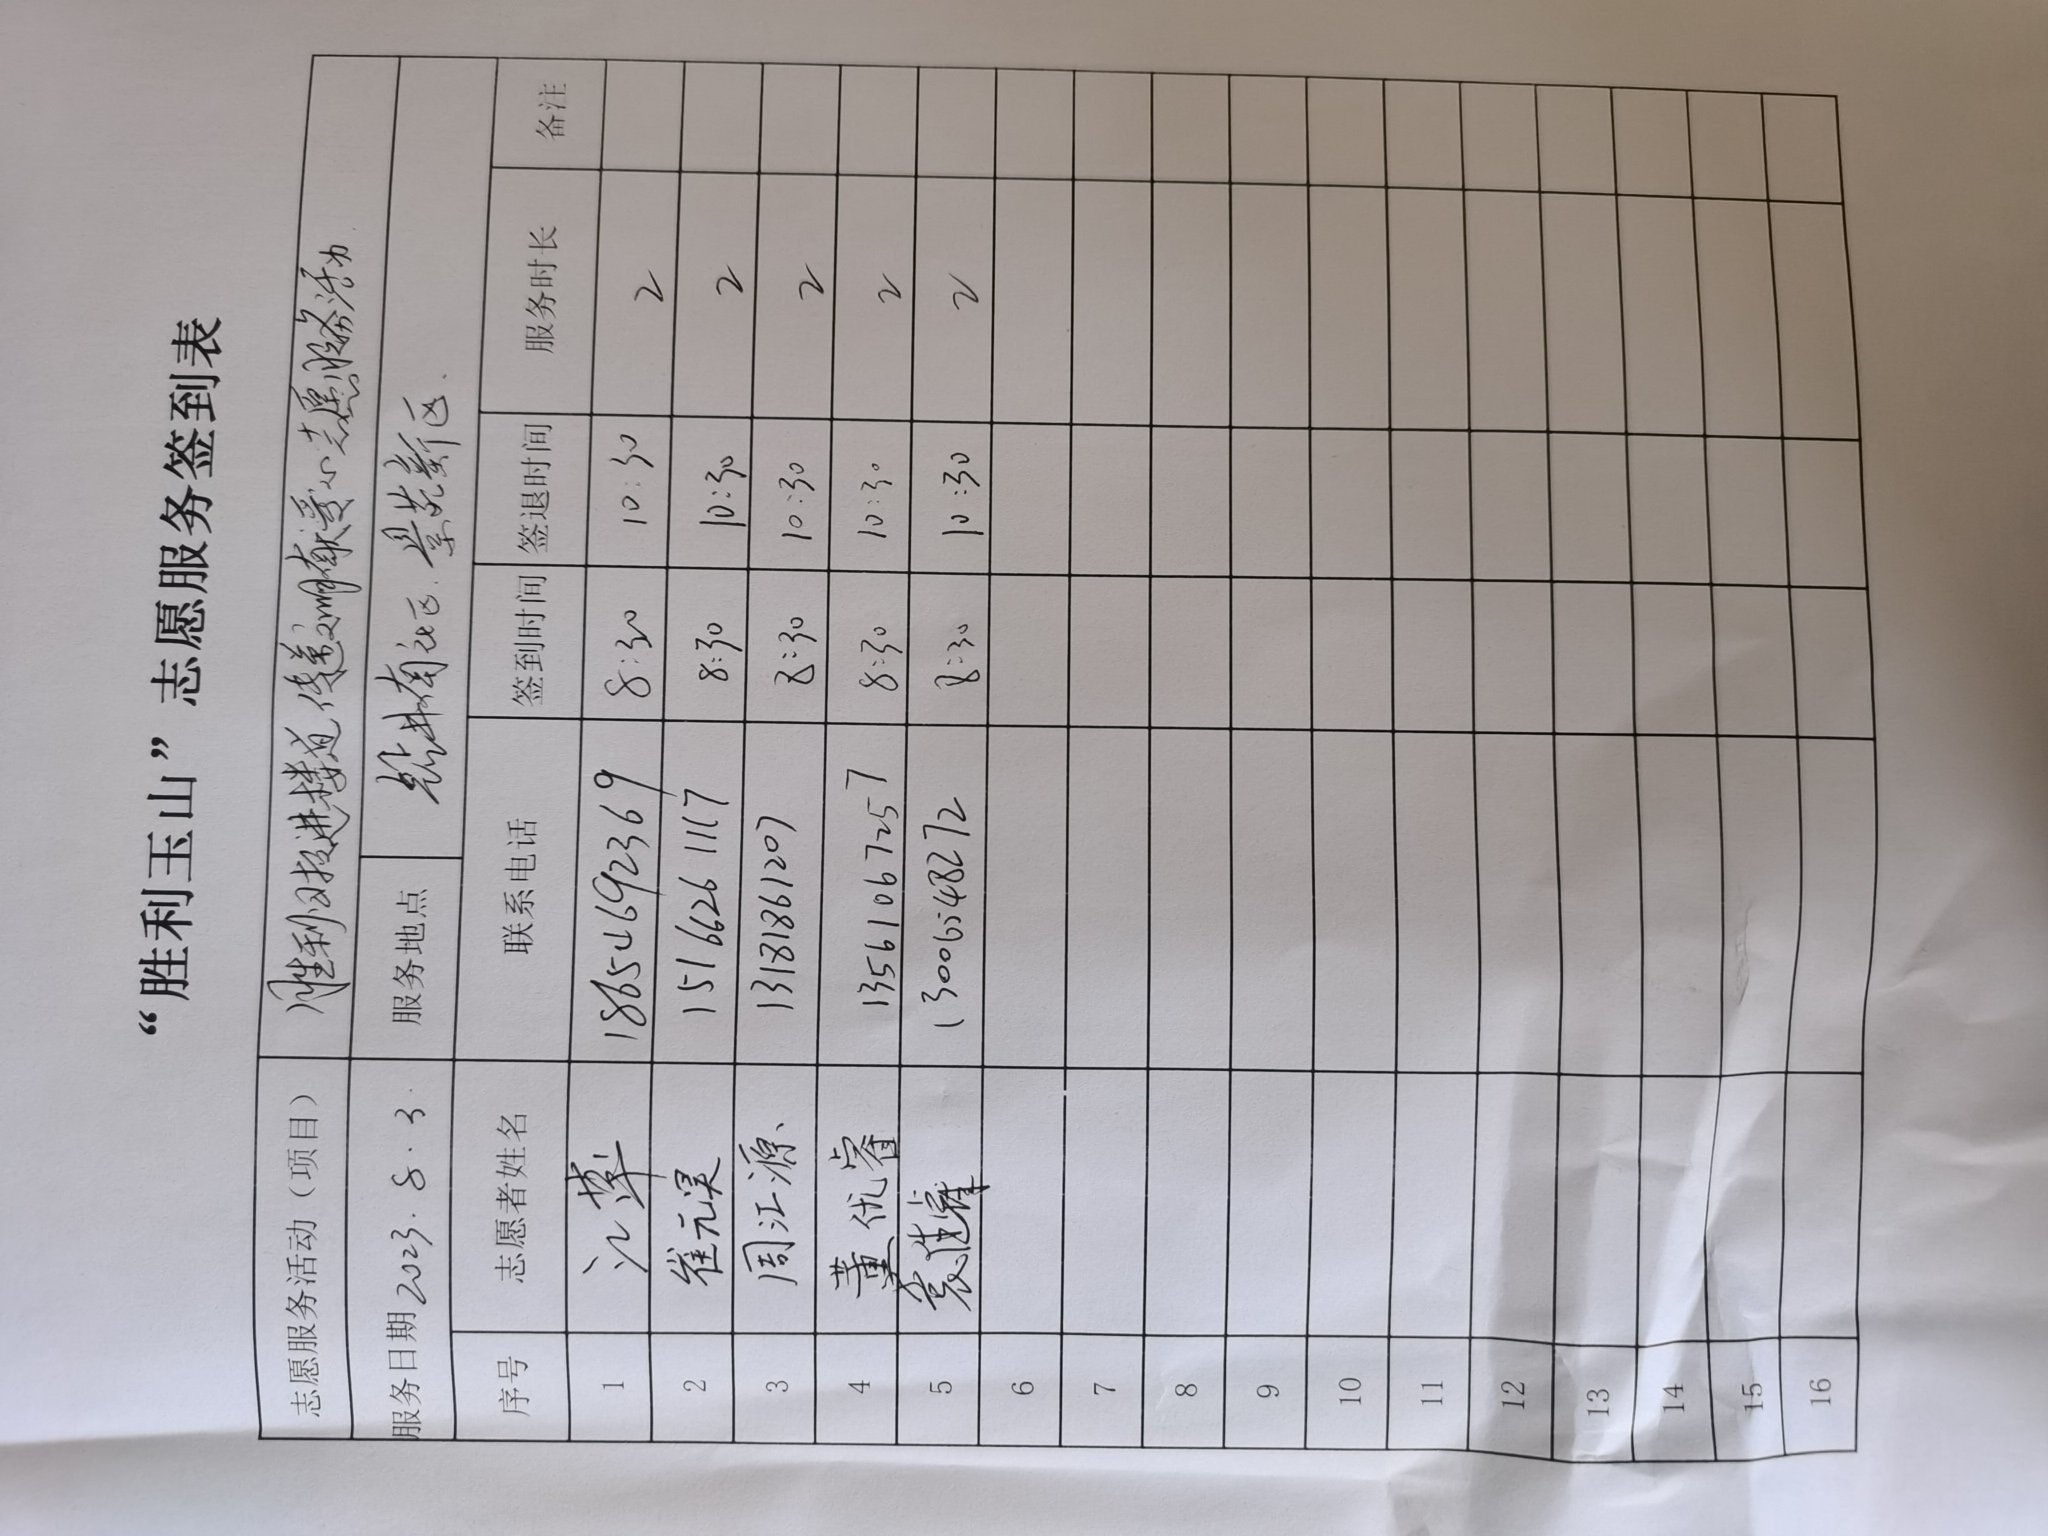 “胜利玉山”志愿服务签到表
志愿服务活动（项目） 胜利习投进楼道传递文明献爱心志愿服务活动
服务日期 2023.8.3. 服务地点 钻井南社区.景苑新区.
序号 志愿者姓名 联系电话 签到时间 签退时间 服务时长 备注
1 江苹 18654692369 8:30 10:30 2
2 崔元昊 15166261117 8:30 10:30 2
3 周江源 13181861207 8:30 10:30 2
4 董优睿 13561067257 8:30 10:30 2
5 8:30 10:30 2
6
7
8
9
10
11
12
13
14
15
16